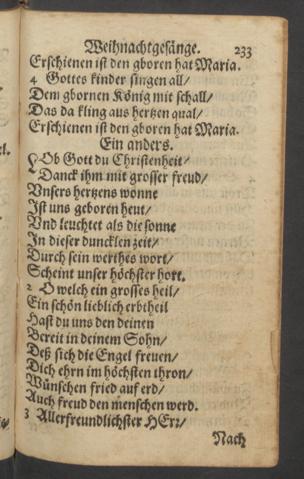 Weihnachtgesänge. 233
Erschienen ist den gboren hat Maria.
4 Gottes kinder singen all/
Dem gbornen König mit schall/
Das da kling aus hertzen qual/
Erschienen ist den gboren hat Maria.
Ein anders.
LOb Gott du Christenheit/
Danck ihm mit grosser freud/
Vnsers hertzens wonne
Ist uns geboren heut/
Vnd leuchtet als die sonne
In dieser duncklen zeit/
Durch sein werthes wort/
Scheint unser höchster hort.
2 O welch ein grosses heil/
Ein schön lieblich erbtheil
Hast du uns den deinen
Bereit in deinem Sohn/
Deß sich die Engel freuen/
Dich ehrn im höchsten thron/
Wünschen fried auf erd/
Auch freud den menschen werd.
3 Allerfreundlichster HErr/
Nach